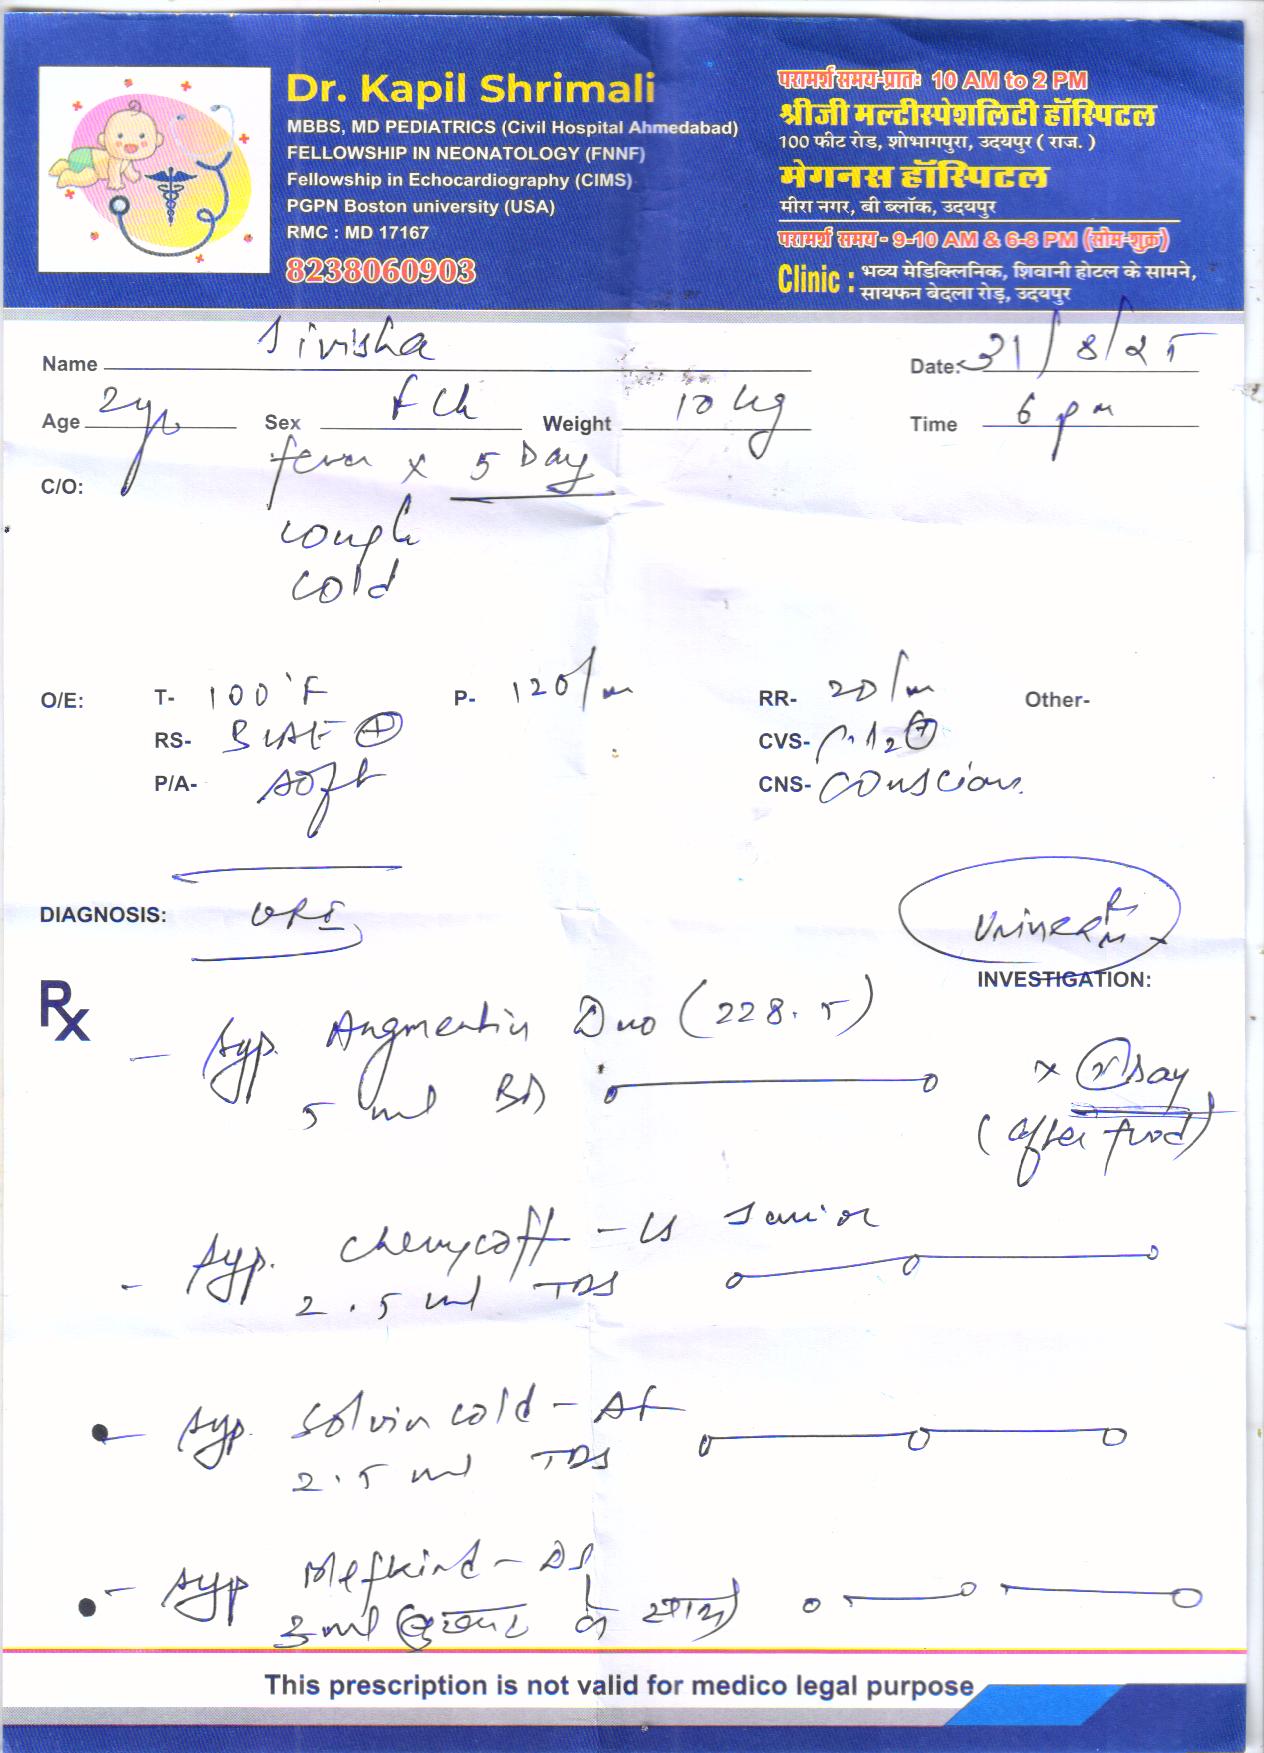 Dr. Kapil Shrimali
MBBS, MD PEDIATRICS (Civil Hospital Ahmedabad)
FELLOWSHIP IN NEONATOLOGY (FNNF)
Fellowship in Echocardiography (CIMS)
PGPN Boston university (USA)
RMC : MD 17167
8238060903
परामर्श समय-प्रातः 10 AM to 2 PM
श्रीजी मल्टीस्पेशलिटी हॉस्पिटल
100 फीट रोड, शोभागपुरा, उदयपुर ( राज. )
मेगनस हॉस्पिटल
मीरा नगर, बी ब्लॉक, उदयपुर
परामर्श समय - 9-10 AM & 6-8 PM (सोम-शुक्र)
Clinic : भव्य मेडिक्लिनिक, शिवानी होटल के सामने,
सायफन बेदला रोड़, उदयपुर
Name Sivisha Date: 31/8/25
Age 2yr Sex fch Weight 10 kg Time 6 pm
C/O: fever x 5 Day
cough
cold
O/E: T- 100°F P- 120/m RR- 20/m Other-
RS- BLAE ⊕ CVS- S1S2⊕
P/A- soft CNS- Conscious
DIAGNOSIS: URI
Urine R/M
INVESTIGATION:
Rx
- Syp. Augmentin Duo (228.5)
5 ml BD x 5 Day
(after food)
- Syp. Cherycoff - LS Junior
2.5 ml TDS
- Syp. Solvin cold - AF
2.5 ml TDS
- Syp Mefkind - DS
3 ml (बुखार के साथ)
This prescription is not valid for medico legal purpose